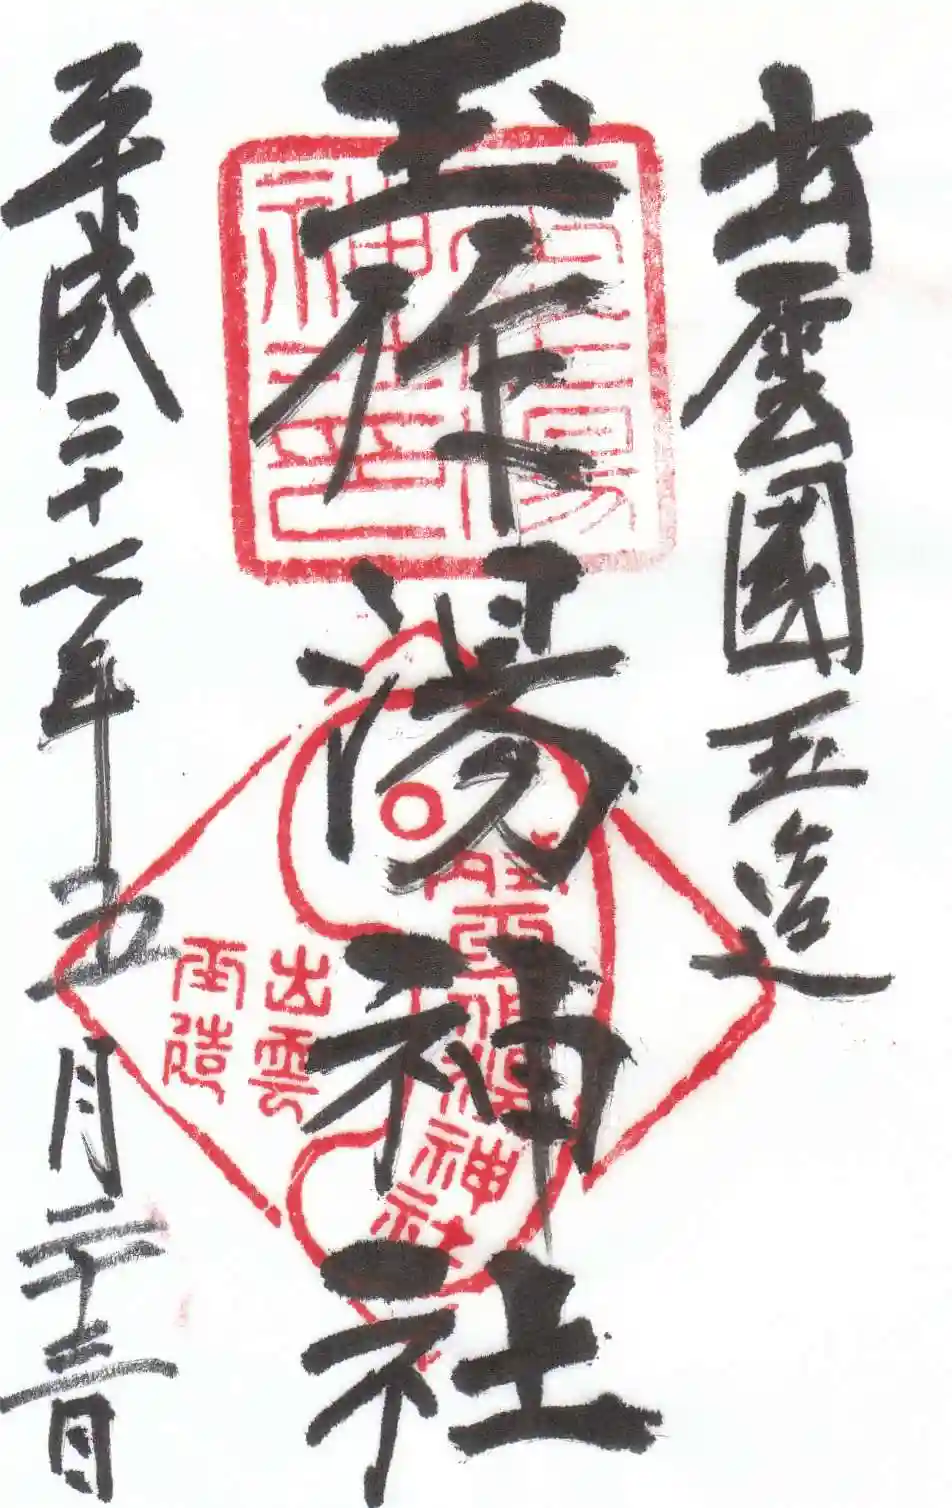 出雲國玉造
玉作湯神社
平成二十七年五月二十三日
出雲
玉造
玉作湯
神社